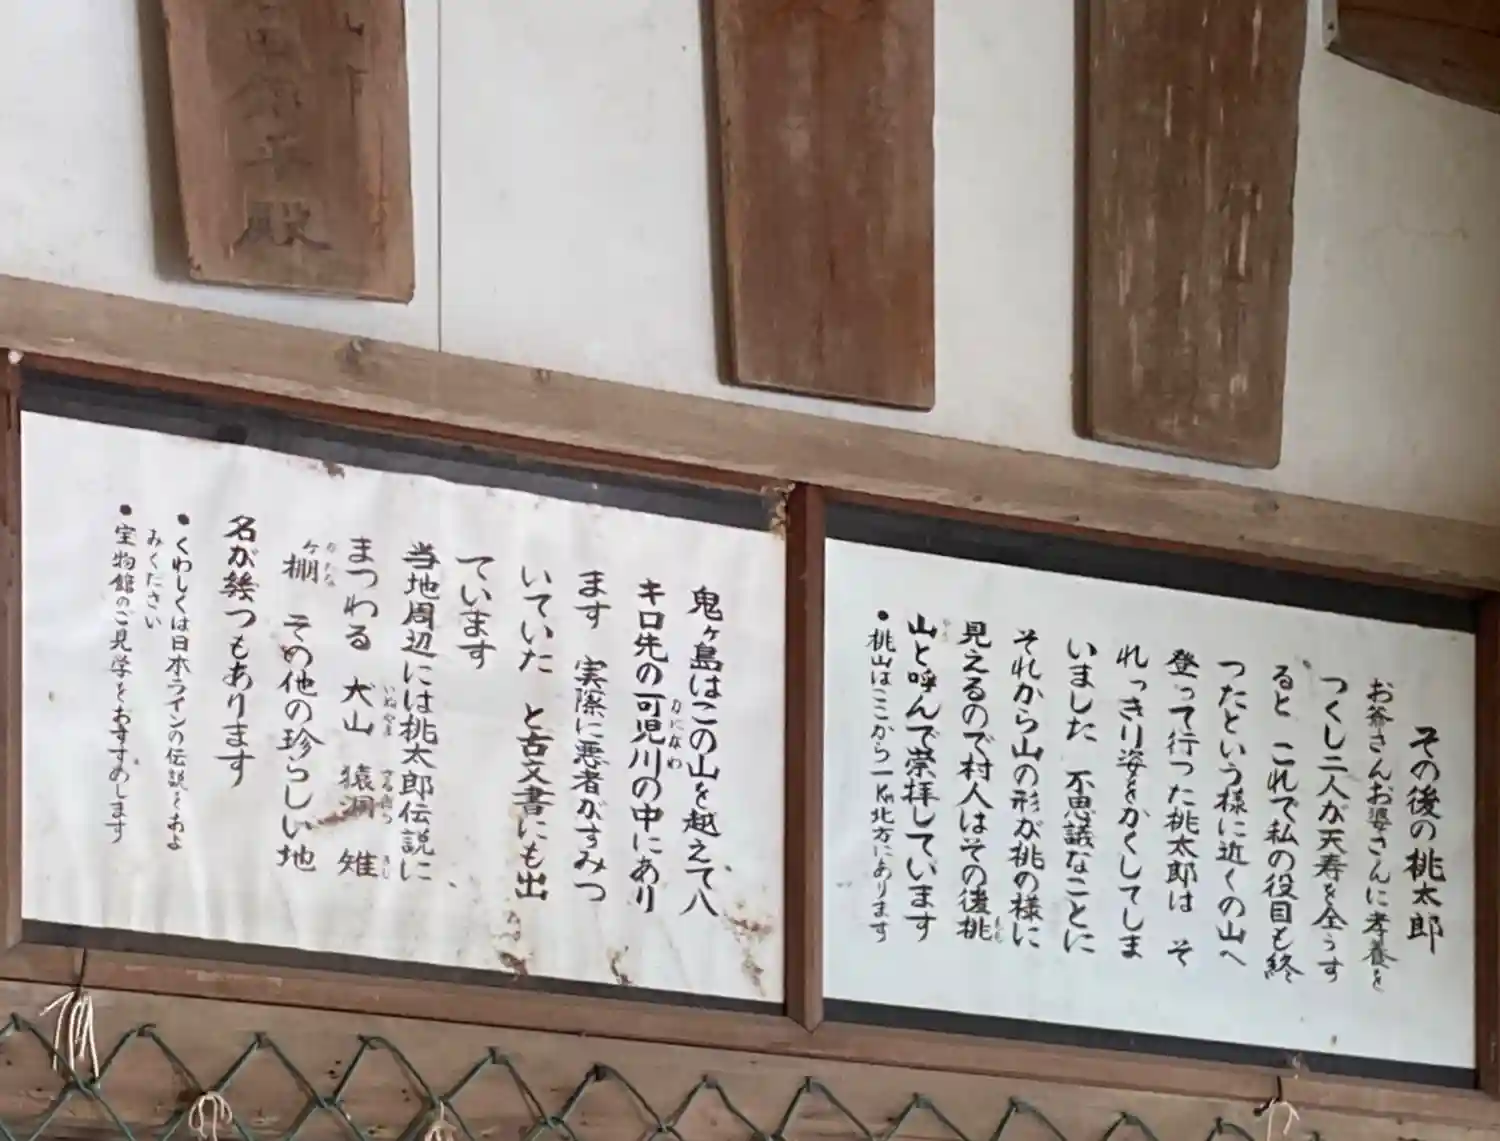 その後の桃太郎
お爺さんお婆さんに孝養を
つくし二人が天寿を全うす
ると これで私の役目も終
つたという様に近くの山へ
登って行った桃太郎は そ
れっきり姿をかくしてしま
いました 不思議なことに
それから山の形が桃の様に
見えるので村人はその後桃
山と呼んで崇拝しています
●桃山はここから一Km北方にあります
鬼ヶ島はこの山を越えて八
キロ先の可児川の中にあり
ます 実際に悪者がすみつ
いていた と古文書にも出
ています
当地周辺には桃太郎伝説に
まつわる 犬山 猿洞 雉
ヶ棚 その他の珍らしい地
名が幾つもあります
●くわしくは日本ラインの伝説をおよ
みください
●宝物館のご見学をおすすめします
殿